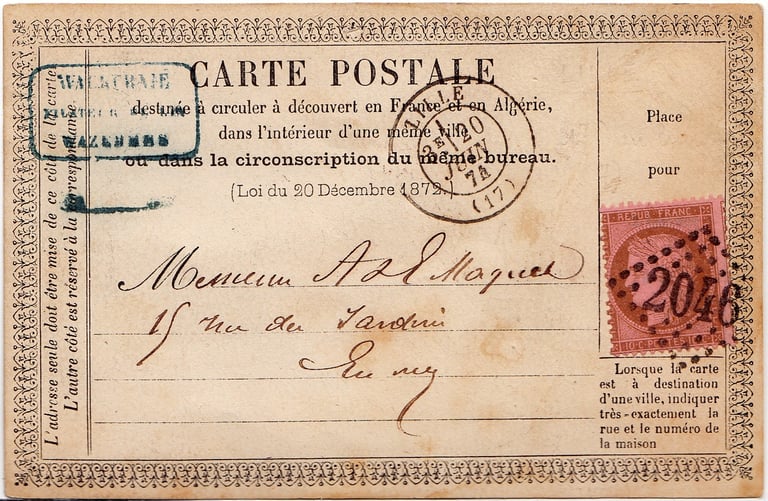 CARTE POSTALE
destinée à circuler à découvert en France et en Algérie,
dans l'intérieur d'une même ville
ou dans la circonscription du même bureau.
(Loi du 20 Décembre 1872.)
WAZEMMES
LILLE
2E
20
JUIN
74
(17)
Place
pour
REPUB FRANC
10 C POSTES 10 C
2046
Messieurs A & E Maquet
15 rue des Jardins
En ville
Lorsque la carte
est à destination
d'une ville, indiquer
très-exactement la
rue et le numéro de
la maison
L'adresse seule doit être mise de ce côté de la carte
L'autre côté est réservé à la correspondance.